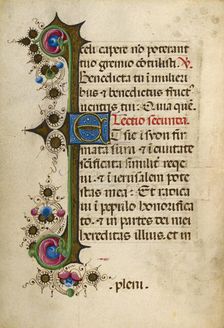 celi capere non poterant
tuo gremio contulisti.
Benedicta tu in mulieri
bus et benedictus fruct
ventris tui: Quia quem
Lectio secunda.
ET sic i syon fir
mata sum et i civitate
sctificata similit reqe
vi et i ierusalem potes
tas mea: Et radica
vi i populo honorifico
et in partes dei mei
hereditas illius: et in
pleni